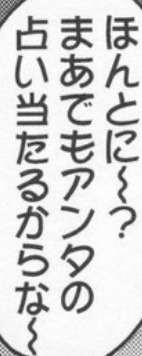 ほんとに～？
まあでもアンタの
占い当たるからな～